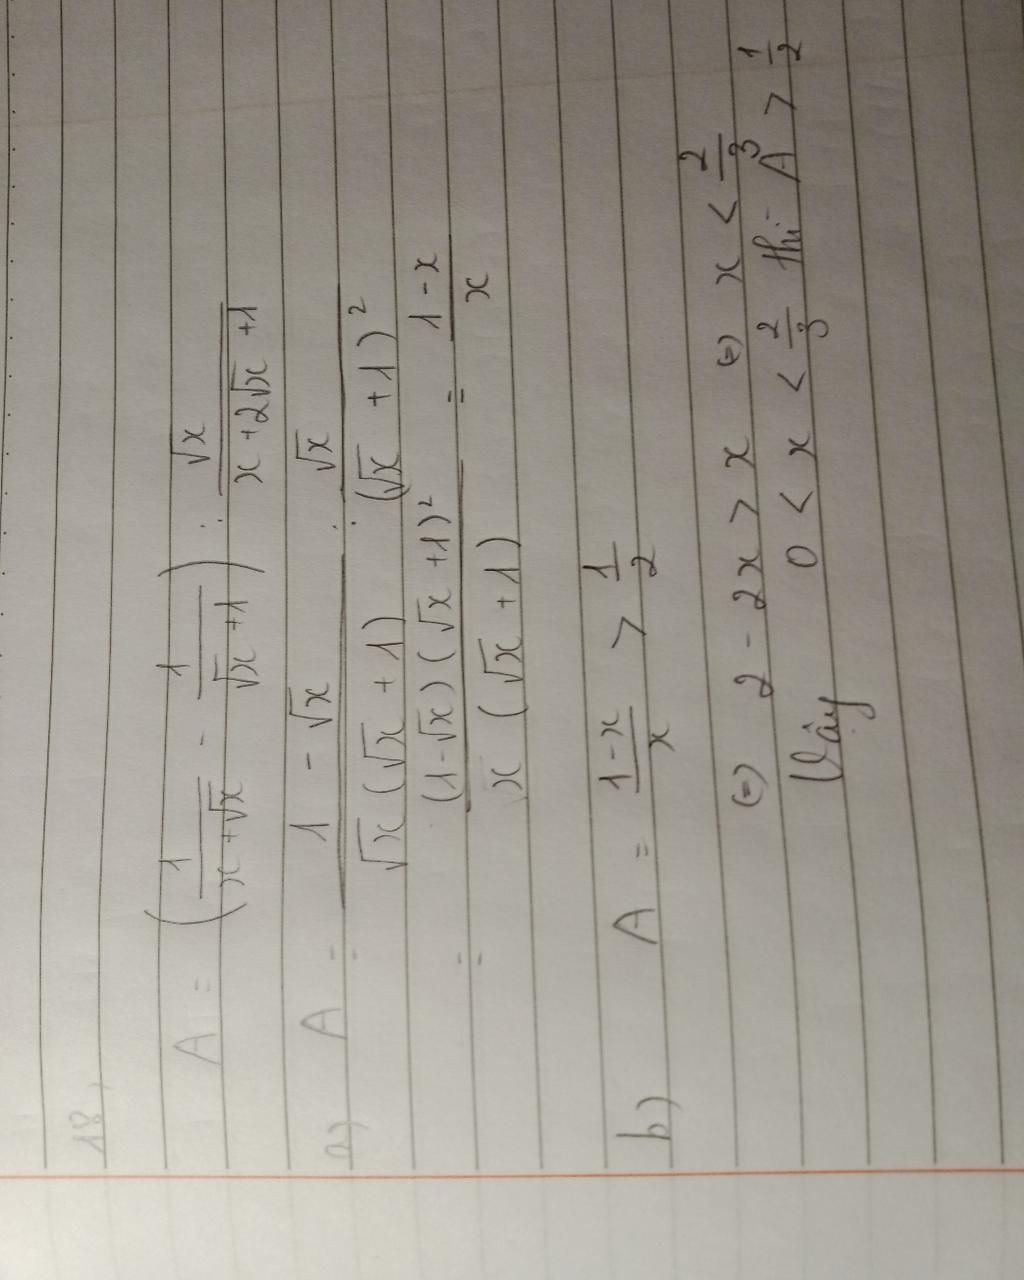 18,
A = (1/(x+√x) - 1/(√x+1)) : √x/(x+2√x+1)
a) A = (1 - √x)/(√x(√x + 1)) : √x/(√x + 1)²
= (1-√x)(√x+1)²/(x(√x+1)) = (1-x)/x
b) A = (1-x)/x > 1/2
(=) 2 - 2x > x (=) x < 2/3
Vậy 0 < x < 2/3 thì A > 1/2